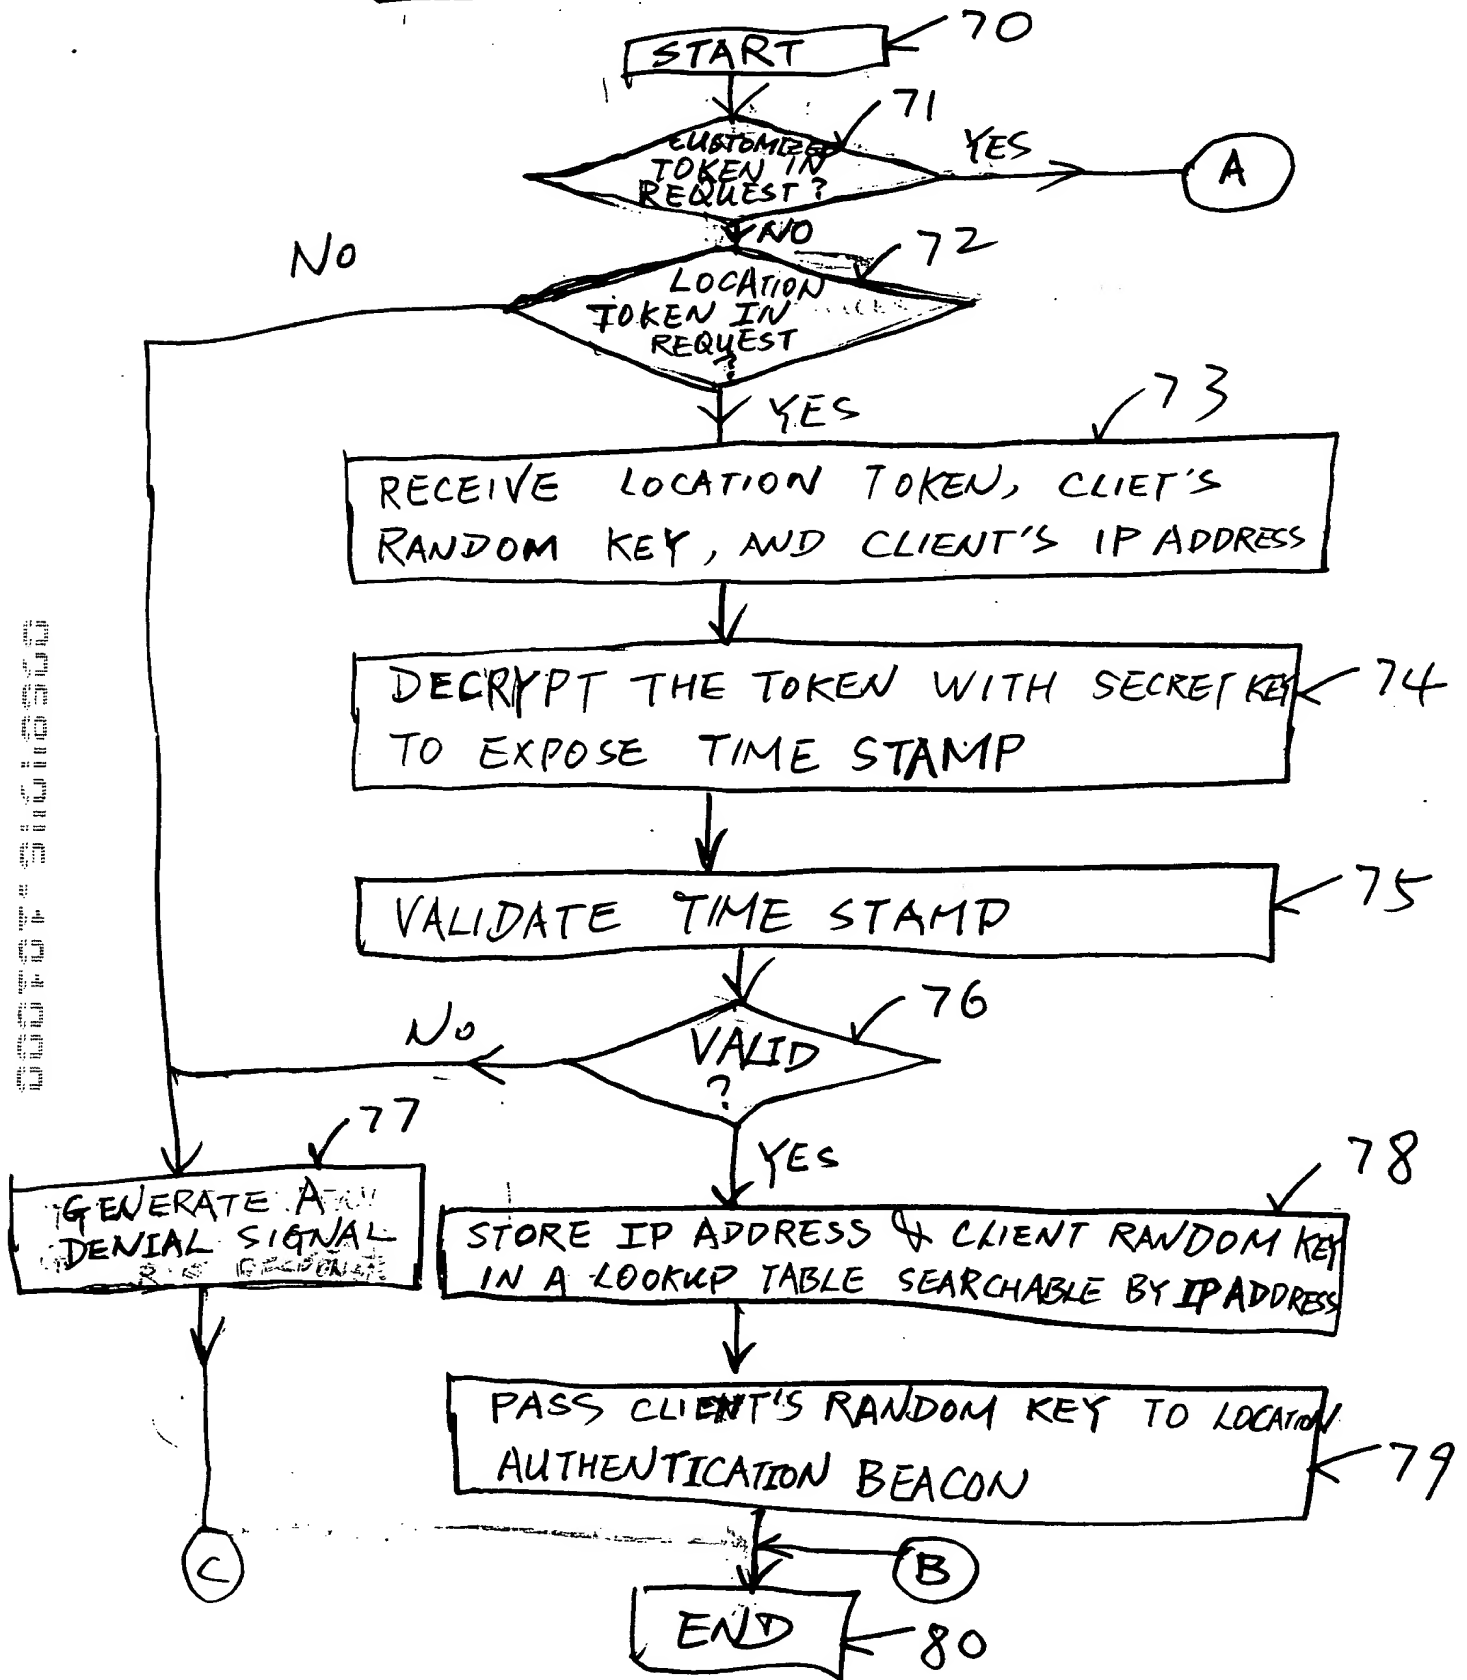 70
START
71
CUSTOMIZED
TOKEN IN
REQUEST?
YES
A
NO
No
72
LOCATION
TOKEN IN
REQUEST
?
YES
73
RECEIVE LOCATION TOKEN, CLIET'S
RANDOM KEY, AND CLIENT'S IP ADDRESS
DECRYPT THE TOKEN WITH SECRET KEY
74
TO EXPOSE TIME STAMP
VALIDATE TIME STAMP
75
No
76
VALID
?
77
YES
78
GENERATE A
DENIAL SIGNAL
STORE IP ADDRESS & CLIENT RANDOM KEY
IN A LOOKUP TABLE SEARCHABLE BY IP ADDRESS
PASS CLIENT'S RANDOM KEY TO LOCATION
AUTHENTICATION BEACON
79
C
B
END
80